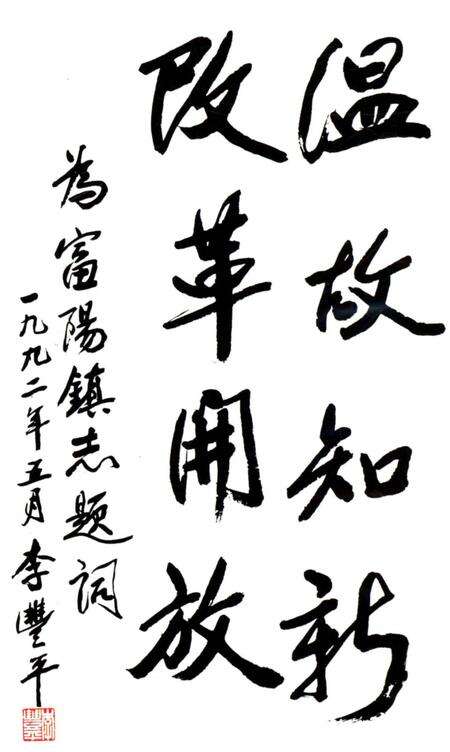 温故知新
改革開放
為富陽鎮志題詞
一九九二年五月李豐平